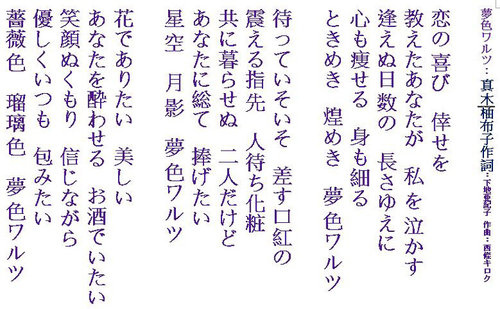 夢色ワルツ：真木柚布子作詞：下地亜記子 作曲：西條キロク
恋の喜び 倖せを
教えたあなたが 私を泣かす
逢えぬ日数の 長さゆえに
心も痩せる 身も細る
ときめき 煌めき 夢色ワルツ
待っていそいそ 差す口紅の
震える指先 人待ち化粧
共に暮らせぬ 二人だけど
あなたに総て 捧げたい
星空 月影 夢色ワルツ
花でありたい 美しい
あなたを酔わせる お酒でいたい
笑顔ぬくもり 信じながら
優しくいつも 包みたい
薔薇色 瑠璃色 夢色ワルツ